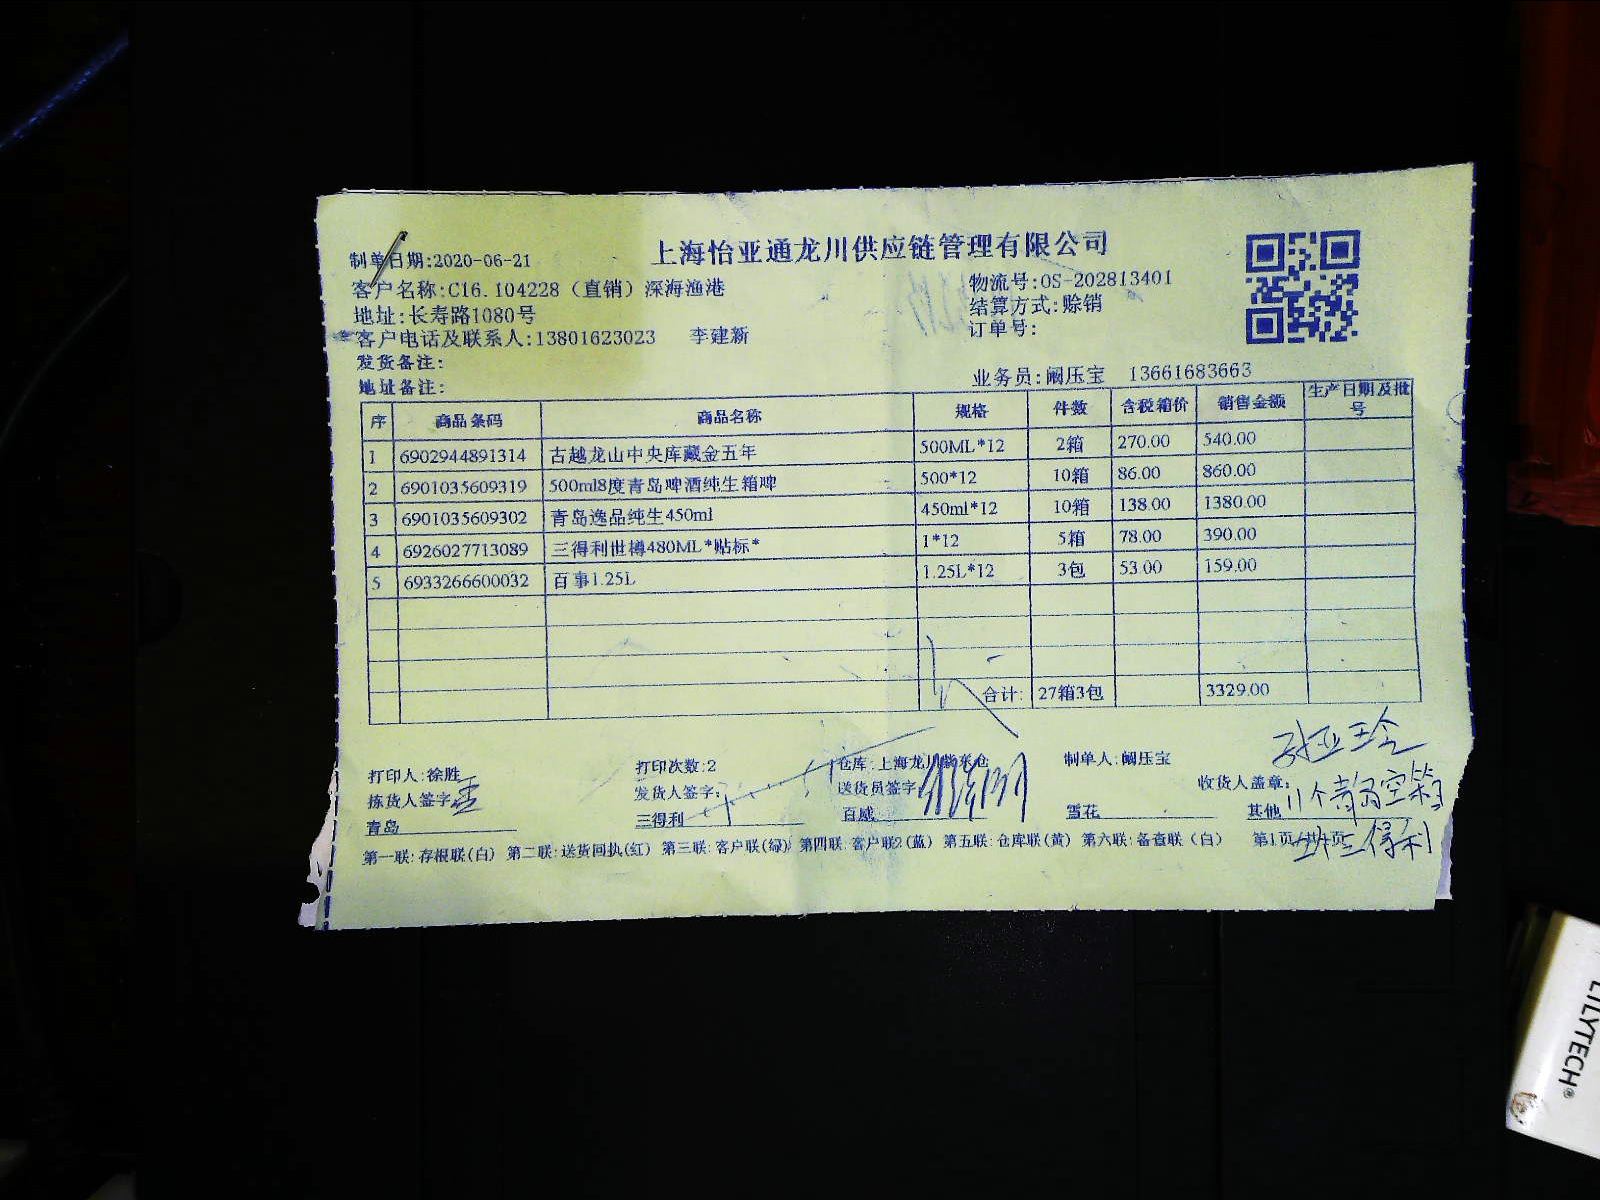 上海怡亚通龙川供应链管理有限公司
制单日期:2020-06-21
客户名称:C16.104228（直销）深海渔港
物流号:OS-202813401
地址:长寿路1080号
结算方式:赊销
客户电话及联系人:13801623023 李建新
订单号:
发货备注:
地址备注:
业务员:阚压宝 13661683663
序 商品条码 商品名称 规格 件数 含税箱价 销售金额 生产日期及批号
1 6902944891314 古越龙山中央库藏金五年 500ML*12 2箱 270.00 540.00
2 6901035609319 500ml8度青岛啤酒纯生箱啤 500*12 10箱 86.00 860.00
3 6901035609302 青岛逸品纯生450ml 450ml*12 10箱 138.00 1380.00
4 6926027713089 三得利世樽480ML*贴标* 1*12 5箱 78.00 390.00
5 6933266600032 百事1.25L 1.25L*12 3包 53.00 159.00
合计: 27箱3包 3329.00
打印人:徐胜 打印次数:2 仓库:上海龙川 制单人:阚压宝
拣货人签字: 发货人签字: 送货员签字: 收货人盖章:
青岛 三得利 百威 雪花 其他 11个青岛空箱
三得利
第一联:存根联(白) 第二联:送货回执(红) 第三联:客户联(绿) 第四联:客户联2(蓝) 第五联:仓库联(黄) 第六联:备查联（白） 第1页
LILYTECH®